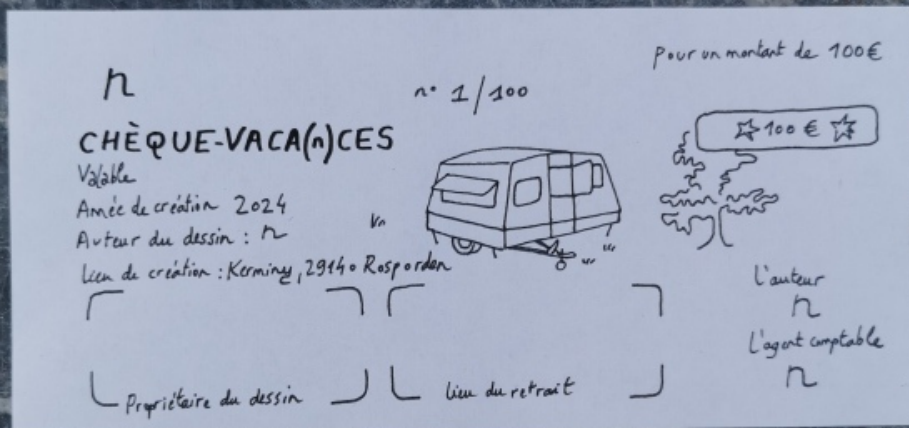 n
n° 1/100
Pour un montant de 100€
CHÈQUE-VACA(n)CES
100 €
Valable
Année de création 2024
Auteur du dessin : n
Lieu de création : Kerminy, 29140 Rosporden
L'auteur
n
L'agent comptable
n
Propriétaire du dessin
Lieu du retrait